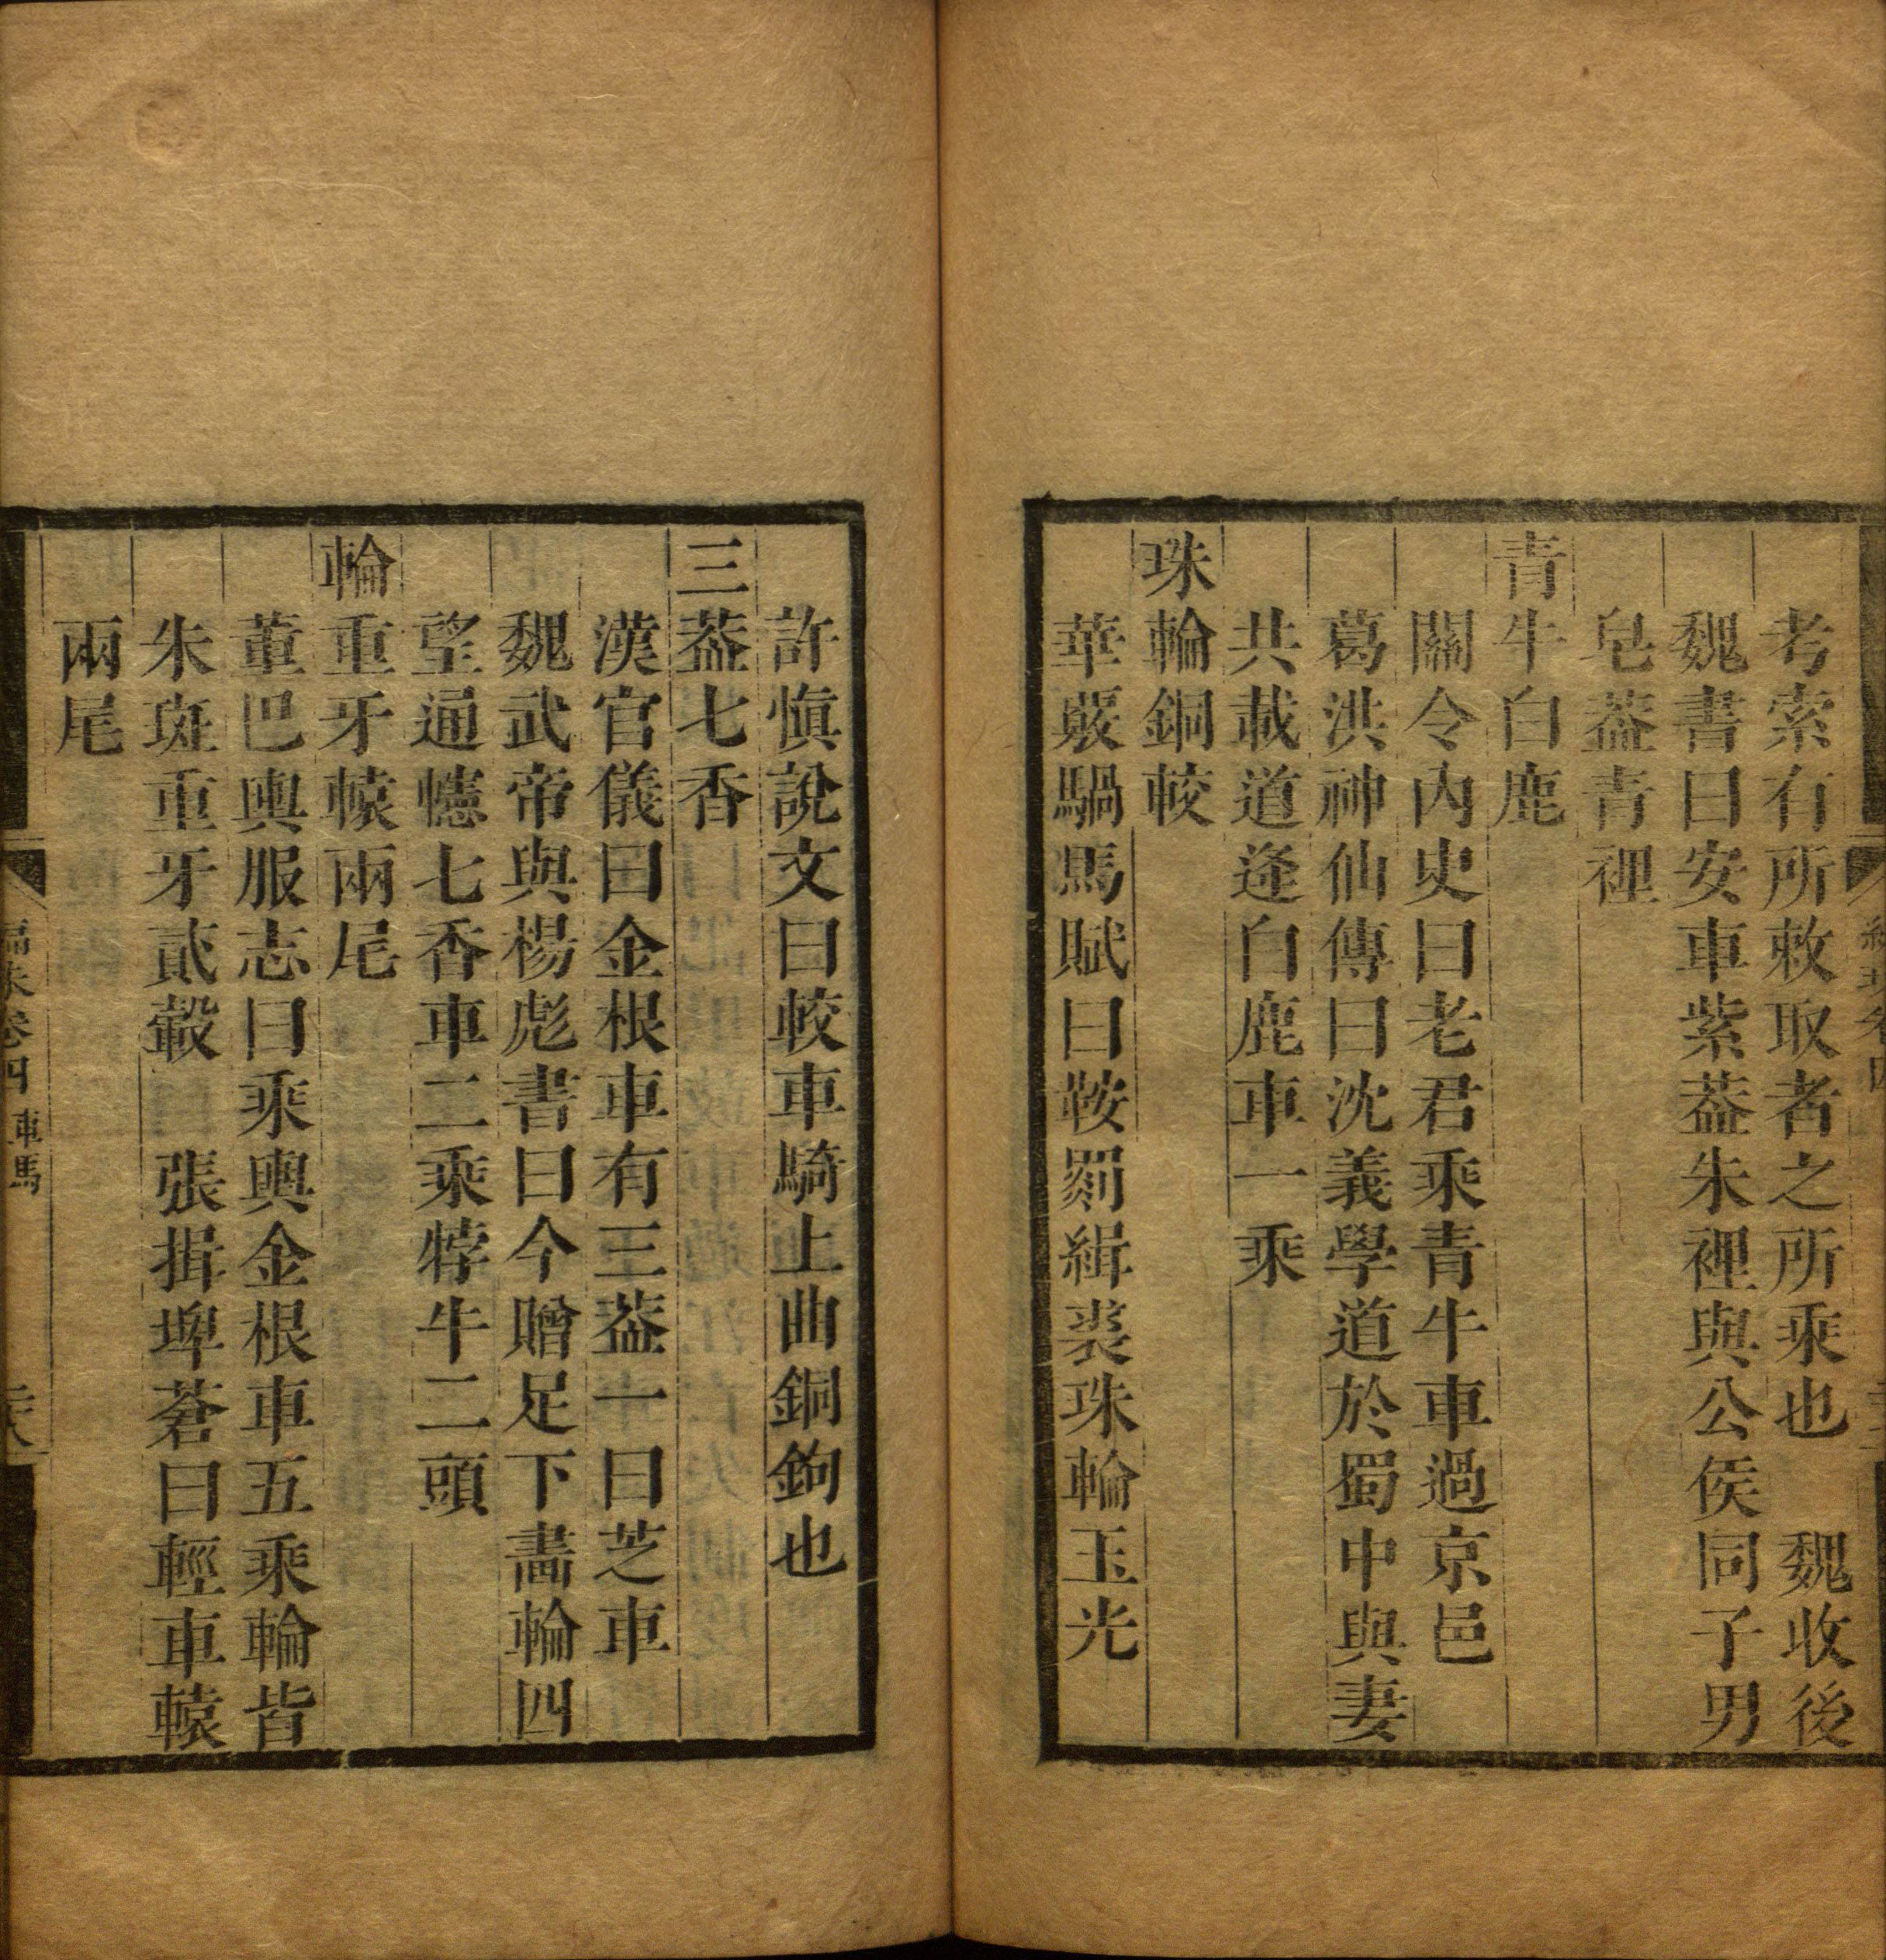 考索有所敕取者之所乘也　魏收後
魏書曰安車紫葢朱裡與公侯同子男
皂葢青裡
青牛白鹿
關令內史曰老君乘青牛車過京邑
葛洪神仙傳曰沈義學道於蜀中與妻
共載道逢白鹿車一乘
珠輪銅較
華嚴騧馬賦曰鞍罽緝裘珠輪玉光
許愼說文曰較車騎上曲銅鉤也
三葢七香
漢官儀曰金根車有三葢一曰芝車
魏武帝與楊彪書曰今贈足下畵輪四
望通幰七香車二乘牸牛二頭
輪重牙轅兩尾
董巴輿服志曰乘輿金根車五乘輪皆
朱斑重牙貳轂　張揖埤蒼曰輕車轅
兩尾
編珠卷四 車馬